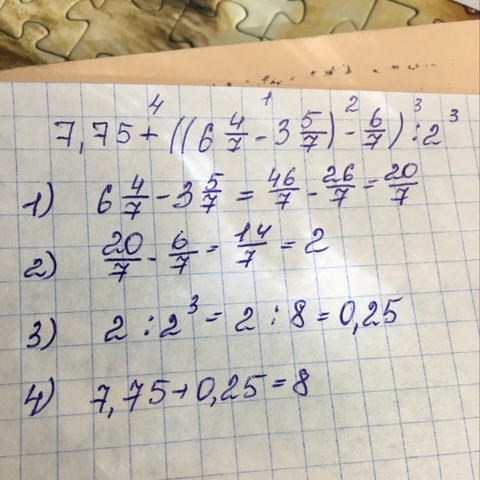 7,75 + ((6 4/7 - 3 5/7) - 6/7) : 2³
1) 6 4/7 - 3 5/7 = 46/7 - 26/7 = 20/7
2) 20/7 - 6/7 = 14/7 = 2
3) 2 : 2³ = 2 : 8 = 0,25
4) 7,75 + 0,25 = 8